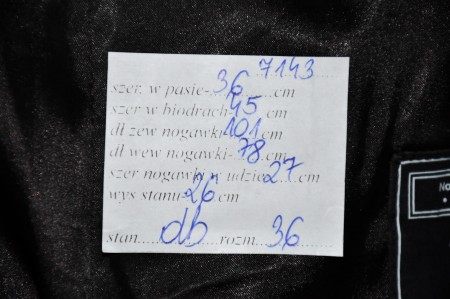 7143
szer. w pasie-...36......cm
szer w biodrach-45 cm
dł zew nogawki-101 cm
dł wew nogawki-78....cm
szer nogawki w udzie 27 cm
wys stanu-26 cm
stan......db......rozm...36
No